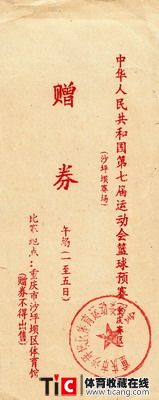 中华人民共和国第七届运动会篮球预赛（重庆赛区）
（沙坪坝赛场）
赠券
午场（一至五日）
比赛地点：重庆市沙坪坝区体育馆
（赠券不得出售）
TIC 体育收藏在线
www.tic100.com